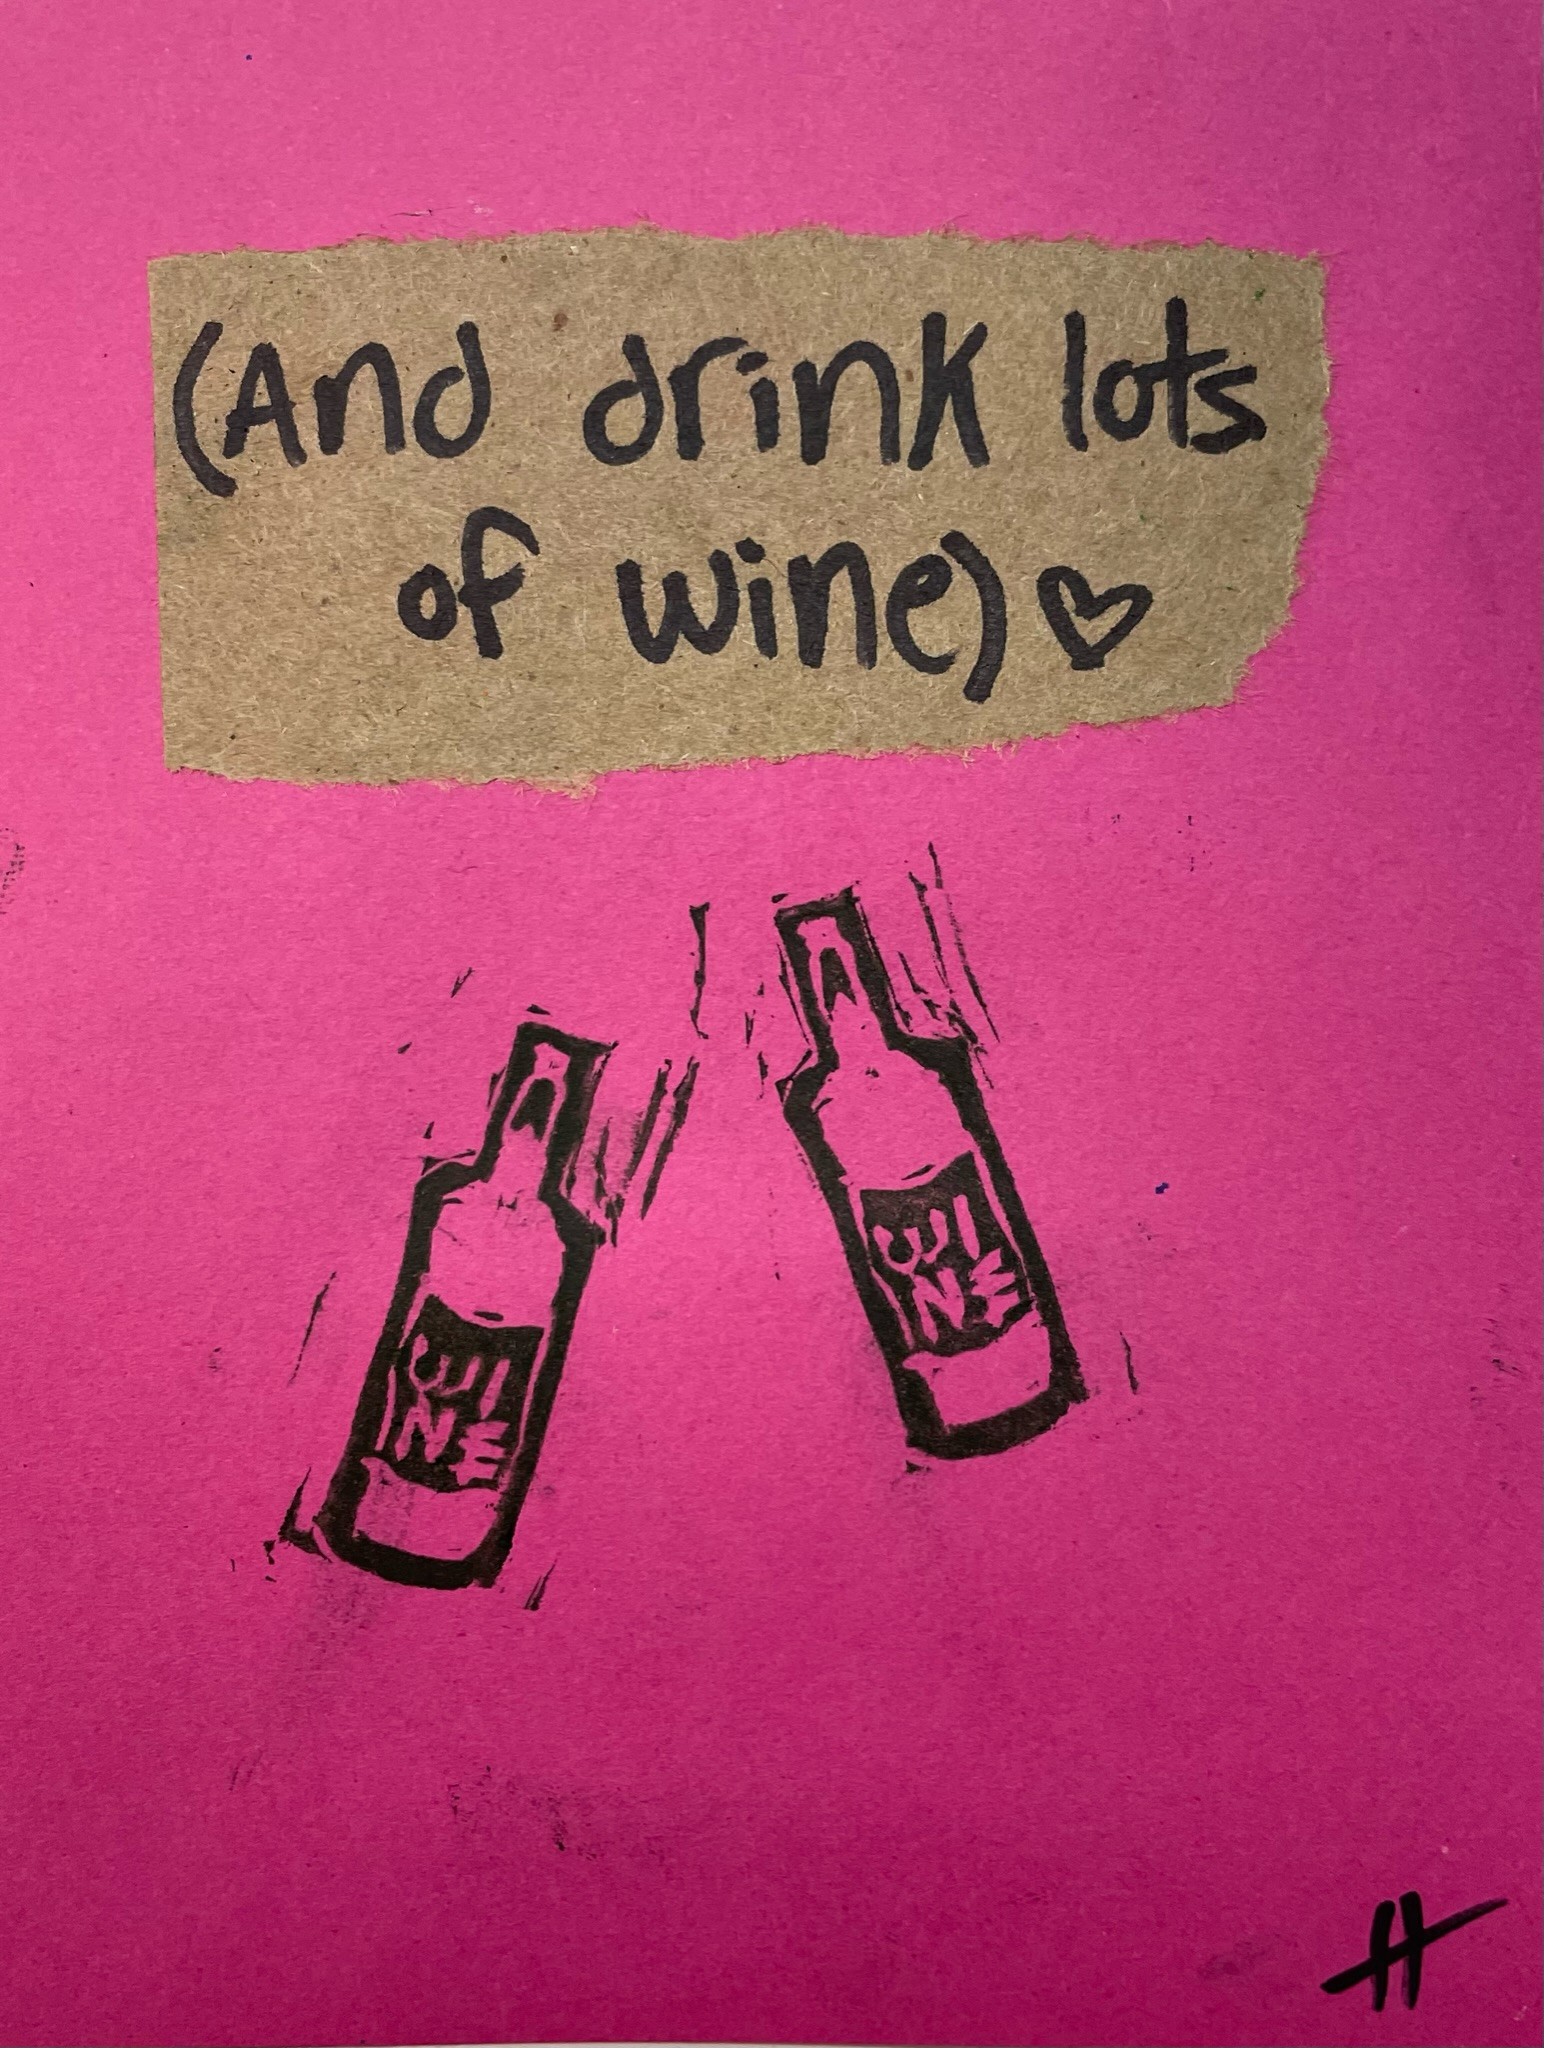 (And drink lots
of wine)♡
WI
NE
WI
NE
H